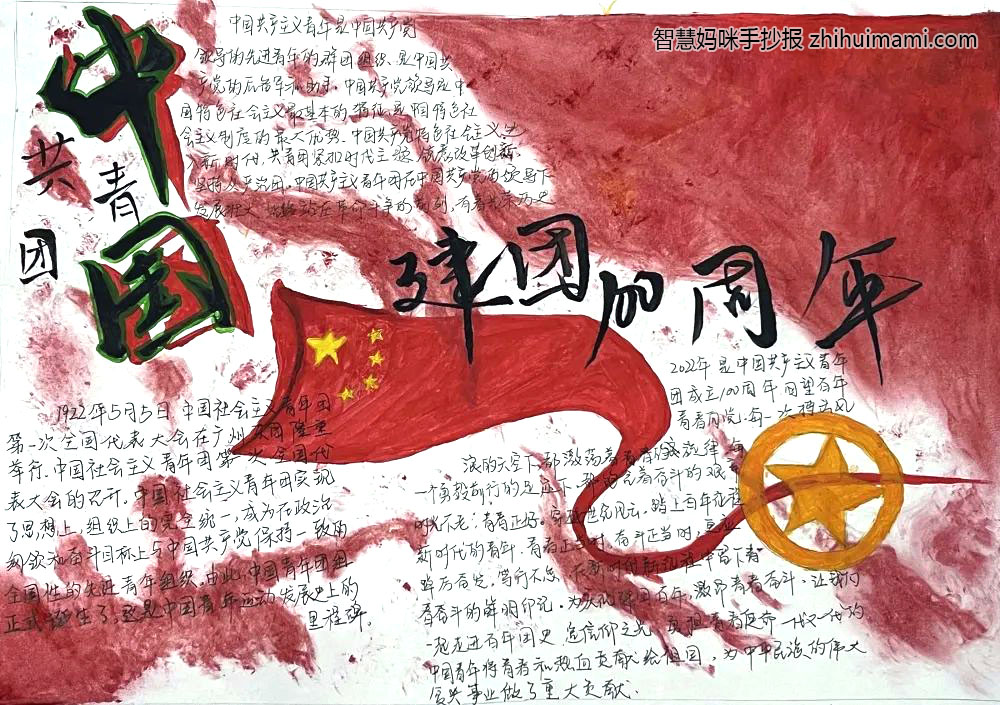 智慧妈咪手抄报 zhihuimami.com
中国
共青团
建团100周年
中国共产主义青年是中国共产党
领导的先进青年的群团组织,是中国共
产党的后备军和助手。中国共产党领导是中
国特色社会主义最基本的特征,是中国特色社
会主义制度的最大优势。中国共产党特色社会主义进
入新时代,共青团紧扣时代主题,改革创新,
坚持从严治团,中国共产主义青年团在中国共产党的领导下
发展壮大,始终站在革命斗争的前列,有着光荣历史
1922年5月5日中国社会主义青年团
第一次全国代表大会在广州东园隆重
举行。中国社会主义青年团第一次全国代
表大会的召开,中国社会主义青年团实现
了思想上,组织上的完全统一,成为在政治
纲领和奋斗目标上与中国共产党保持一致的
全国性的先进青年组织,由此,中国青年团组
正式诞生了,这是中国青年运动发展史上的
里程碑。
2022年是中国共产主义青年
团成立100周年回望百年
青春向党。每一次搏击风
浪的天空下,都激荡着青春的旋律,每
一个勇毅前行的足迹下,都饱含着奋斗的艰辛
时代不老:青春正好。穿越世纪风云,踏上百年征程
新时代的青年,青春正当时,奋斗正当时,
踔厉奋发,笃行不怠,在新时代新征程中留下青
春奋斗的鲜明印记。为庆祝建团百年,激昂青春奋斗,让我们
一起走进百年团史,点信仰之光,勇担青春使命一代又一代的
中国青年将青春和热血贡献给祖国,为中华民族的伟大
复兴事业做了重大贡献.